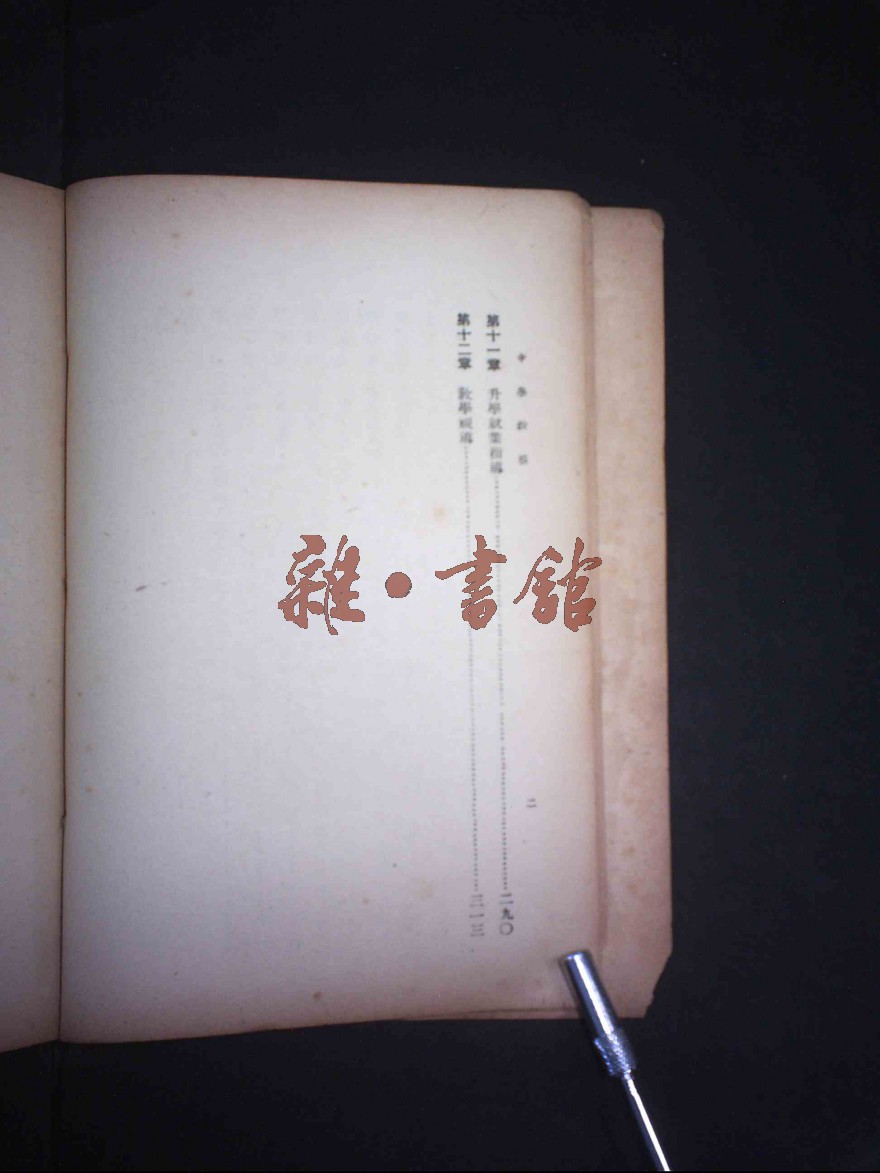 中學教師 二
第十一章 升學就業指導……二九〇
第十二章 教學視導……三一三
雜·書館